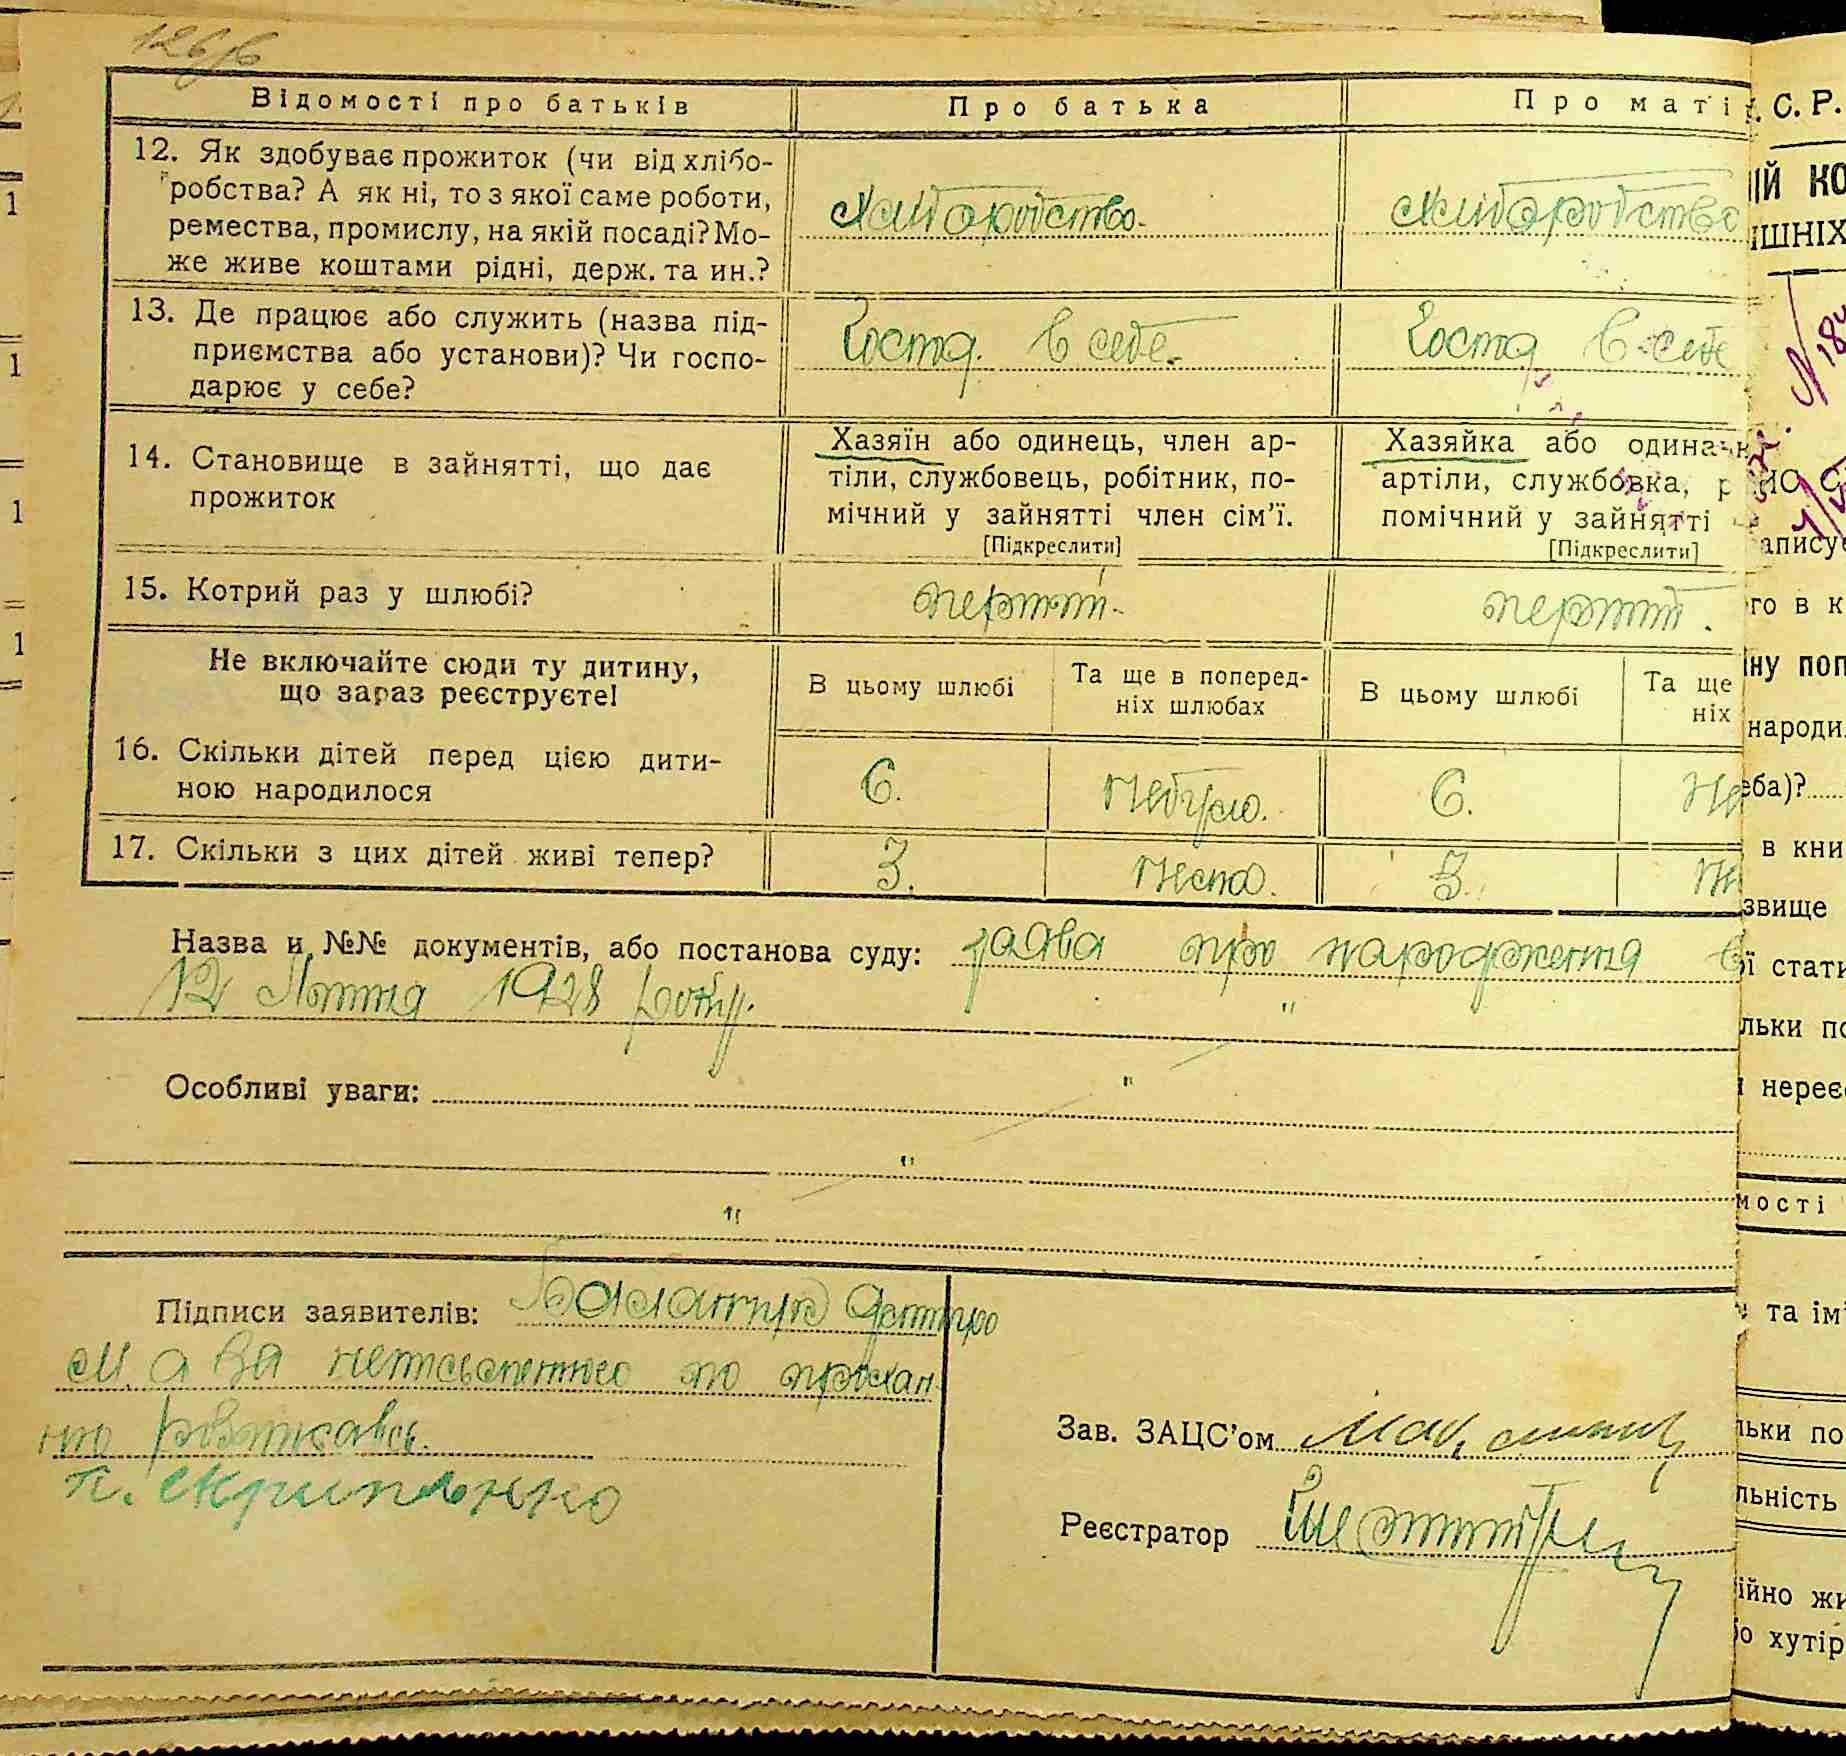 126зв
Відомості про батьків
Про батька
Про маті
12. Як здобуває прожиток (чи від хлібо-
робства? А як ні, то з якої саме роботи,
ремества, промислу, на якій посаді? Мо-
же живе коштами рідні, держ. та ин.?
хліборобство.
хліборобство
13. Де працює або служить (назва під-
приємства або установи)? Чи госпо-
дарює у себе?
Госпд. в себе.
Госпд в себе
14. Становище в зайнятті, що дає
прожиток
Хазяїн або одинець, член ар-
тіли, службовець, робітник, по-
мічний у зайнятті член сім'ї.
[Підкреслити]
Хазяйка або одинач
артіли, службовка, р
помічний у зайнятті
[Підкреслити]
15. Котрий раз у шлюбі?
перший.
перший.
Не включайте сюди ту дитину,
що зараз реєструєте!
В цьому шлюбі
Та ще в поперед-
ніх шлюбах
В цьому шлюбі
Та ще
ніх
16. Скільки дітей перед цією дити-
ною народилося
6.
Небуло.
6.
Не
17. Скільки з цих дітей живі тепер?
3.
Нема.
3.
Не
Назва и №№ документів, або постанова суду: заява про народження в
12 Липня 1928 року.
Особливі уваги:
Підписи заявителів: Баланчук Дмитро
М. а за неписьменного по прохан
ню розписавсь.
П. Скрипенко
Зав. ЗАЦС'ом
Реєстратор
. С. Р.
ІЙ КО
ІШНІХ
N 184
аписує
го в к
ну поп
народи
еба)?
в кни
звище
ї стати
льки по
нереє
мості
та ім'
льки по
льність
ійно жи
о хутір